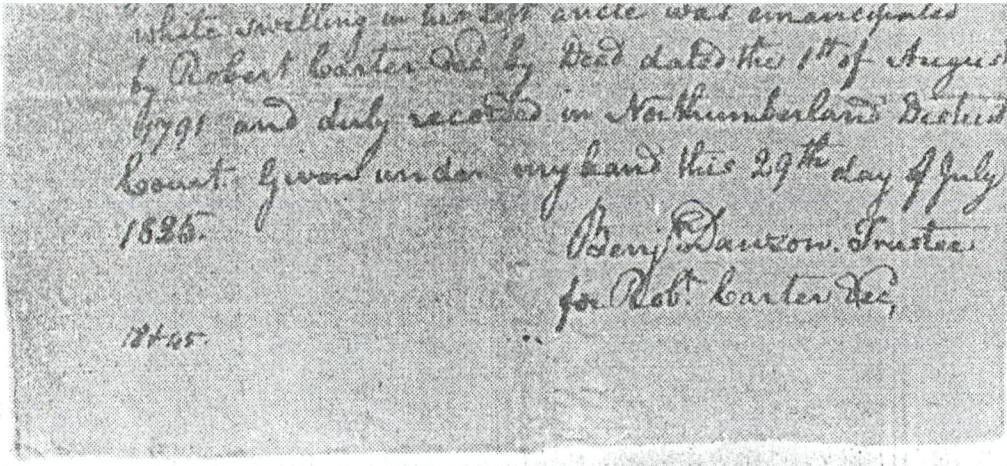 white swelling in his left ancle was emancipated
by Robert Carter Dec, by Deed dated the 1st of Augus
1791 and duly recorded in Northumberland District
Court. Given under my hand this 29th day of July
1825.
Benj. Dawson. Trustee
for Robt. Carter Dec,